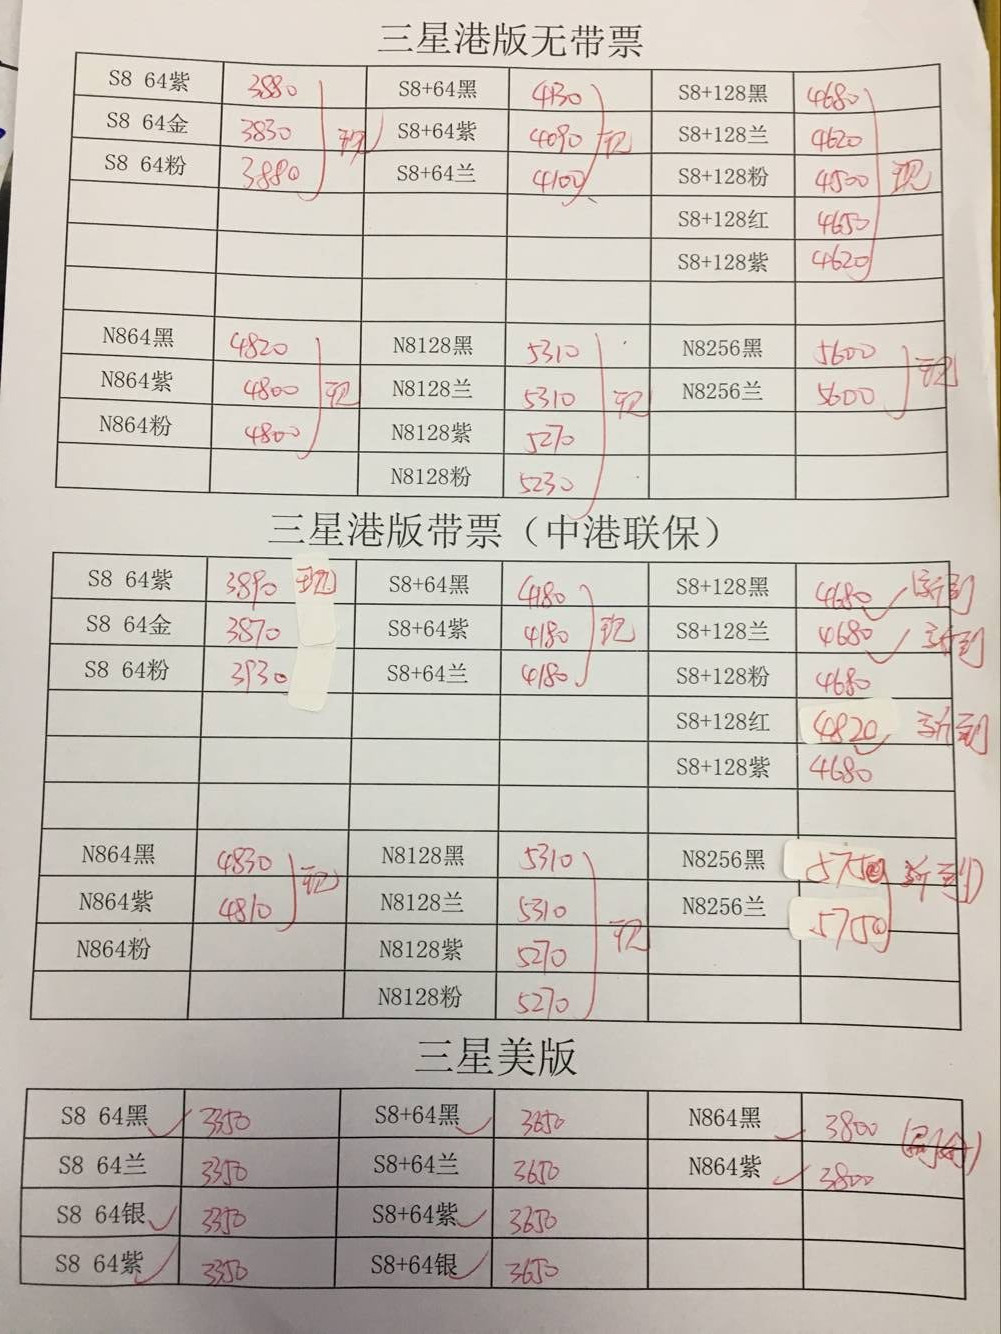 三星港版无带票
S8 64紫 3880 S8+64黑 4130 S8+128黑 4680
S8 64金 3830 现 S8+64紫 4090 现 S8+128兰 4620
S8 64粉 3880 S8+64兰 4100 S8+128粉 4500 现
S8+128红 4650
S8+128紫 4620
N864黑 4820 N8128黑 5310 N8256黑 5600 现
N864紫 4800 现 N8128兰 5310 现 N8256兰 5600
N864粉 4800 N8128紫 5270
N8128粉 5230
三星港版带票（中港联保）
S8 64紫 3890 现 S8+64黑 4180 S8+128黑 4680 新到
S8 64金 3870 S8+64紫 4180 现 S8+128兰 4680 新到
S8 64粉 3930 S8+64兰 4180 S8+128粉 4680
S8+128红 4820 新到
S8+128紫 4680
N864黑 4830 现 N8128黑 5310 N8256黑 5750 新到
N864紫 4810 N8128兰 5310 现 N8256兰 5750
N864粉 N8128紫 5270
N8128粉 5270
三星美版
S8 64黑 3350 S8+64黑 3650 N864黑 3800
S8 64兰 3350 S8+64兰 3650 N864紫 3800
S8 64银 3350 S8+64紫 3650
S8 64紫 3350 S8+64银 3650